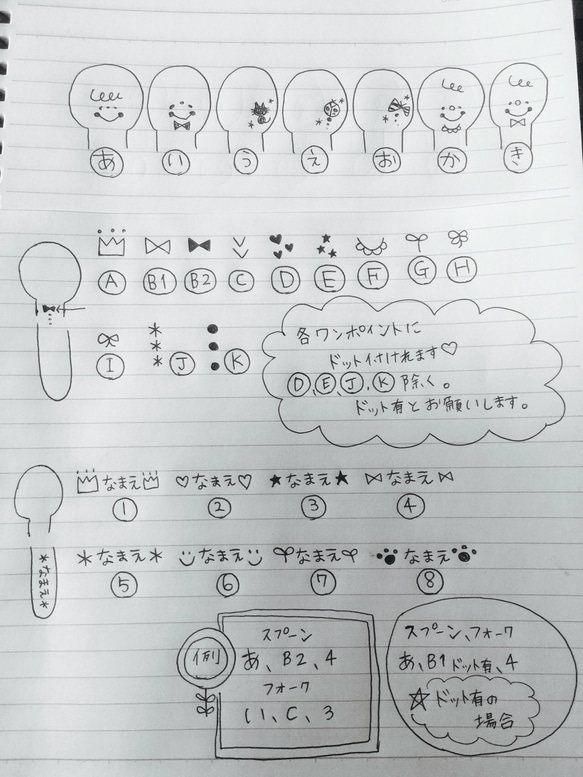 あ い う え お か き
A B1 B2 C D E F G H
I J K
各ワンポイントに
ドット付けれます♡
D、E、J、K 除く。
ドット有とお願いします。
なまえ なまえ なまえ なまえ
① ② ③ ④
*なまえ*
*なまえ* なまえ なまえ なまえ
⑤ ⑥ ⑦ ⑧
例
スプーン
あ、B2、4
フォーク
い、C、3
スプーン、フォーク
あ、B1ドット有、4
☆ドット有の
場合